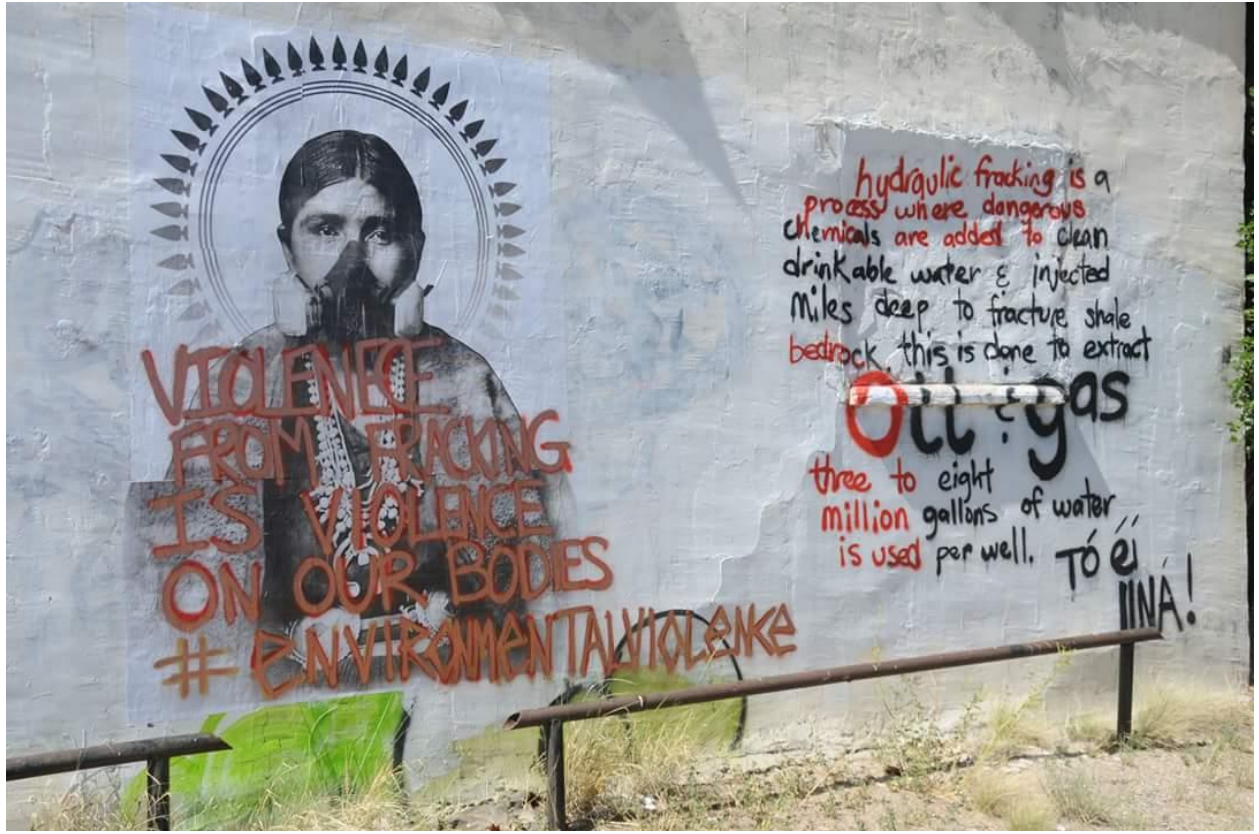 VIOLENECE
FROM FRACKING
IS VIOLENCE
ON OUR BODIES
#ENVIRONMENTALVIOLENCE
hydraulic fracking is a
process where dangerous
chemicals are added to clean
drinkable water & injected
Miles deep to fracture shale
bedrock, this is done to extract
Oil & gas
three to eight
million gallons of water
is used per well.
TÓ éí
IINÁ!